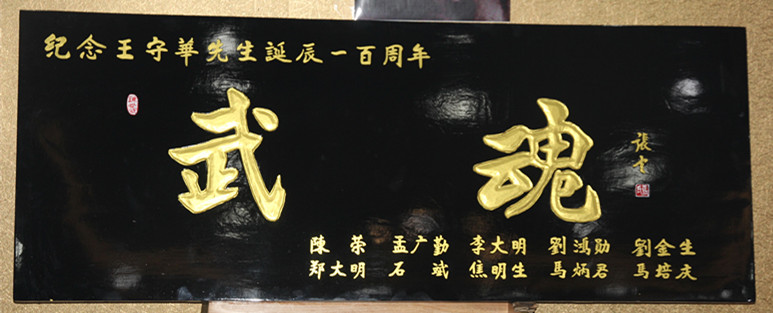 纪念王守華先生誕辰一百周年
武魂
陳荣 孟广勤 李大明 劉鴻勋 劉金生
郑大明 石斌 焦明生 馬炳君 馬培庆